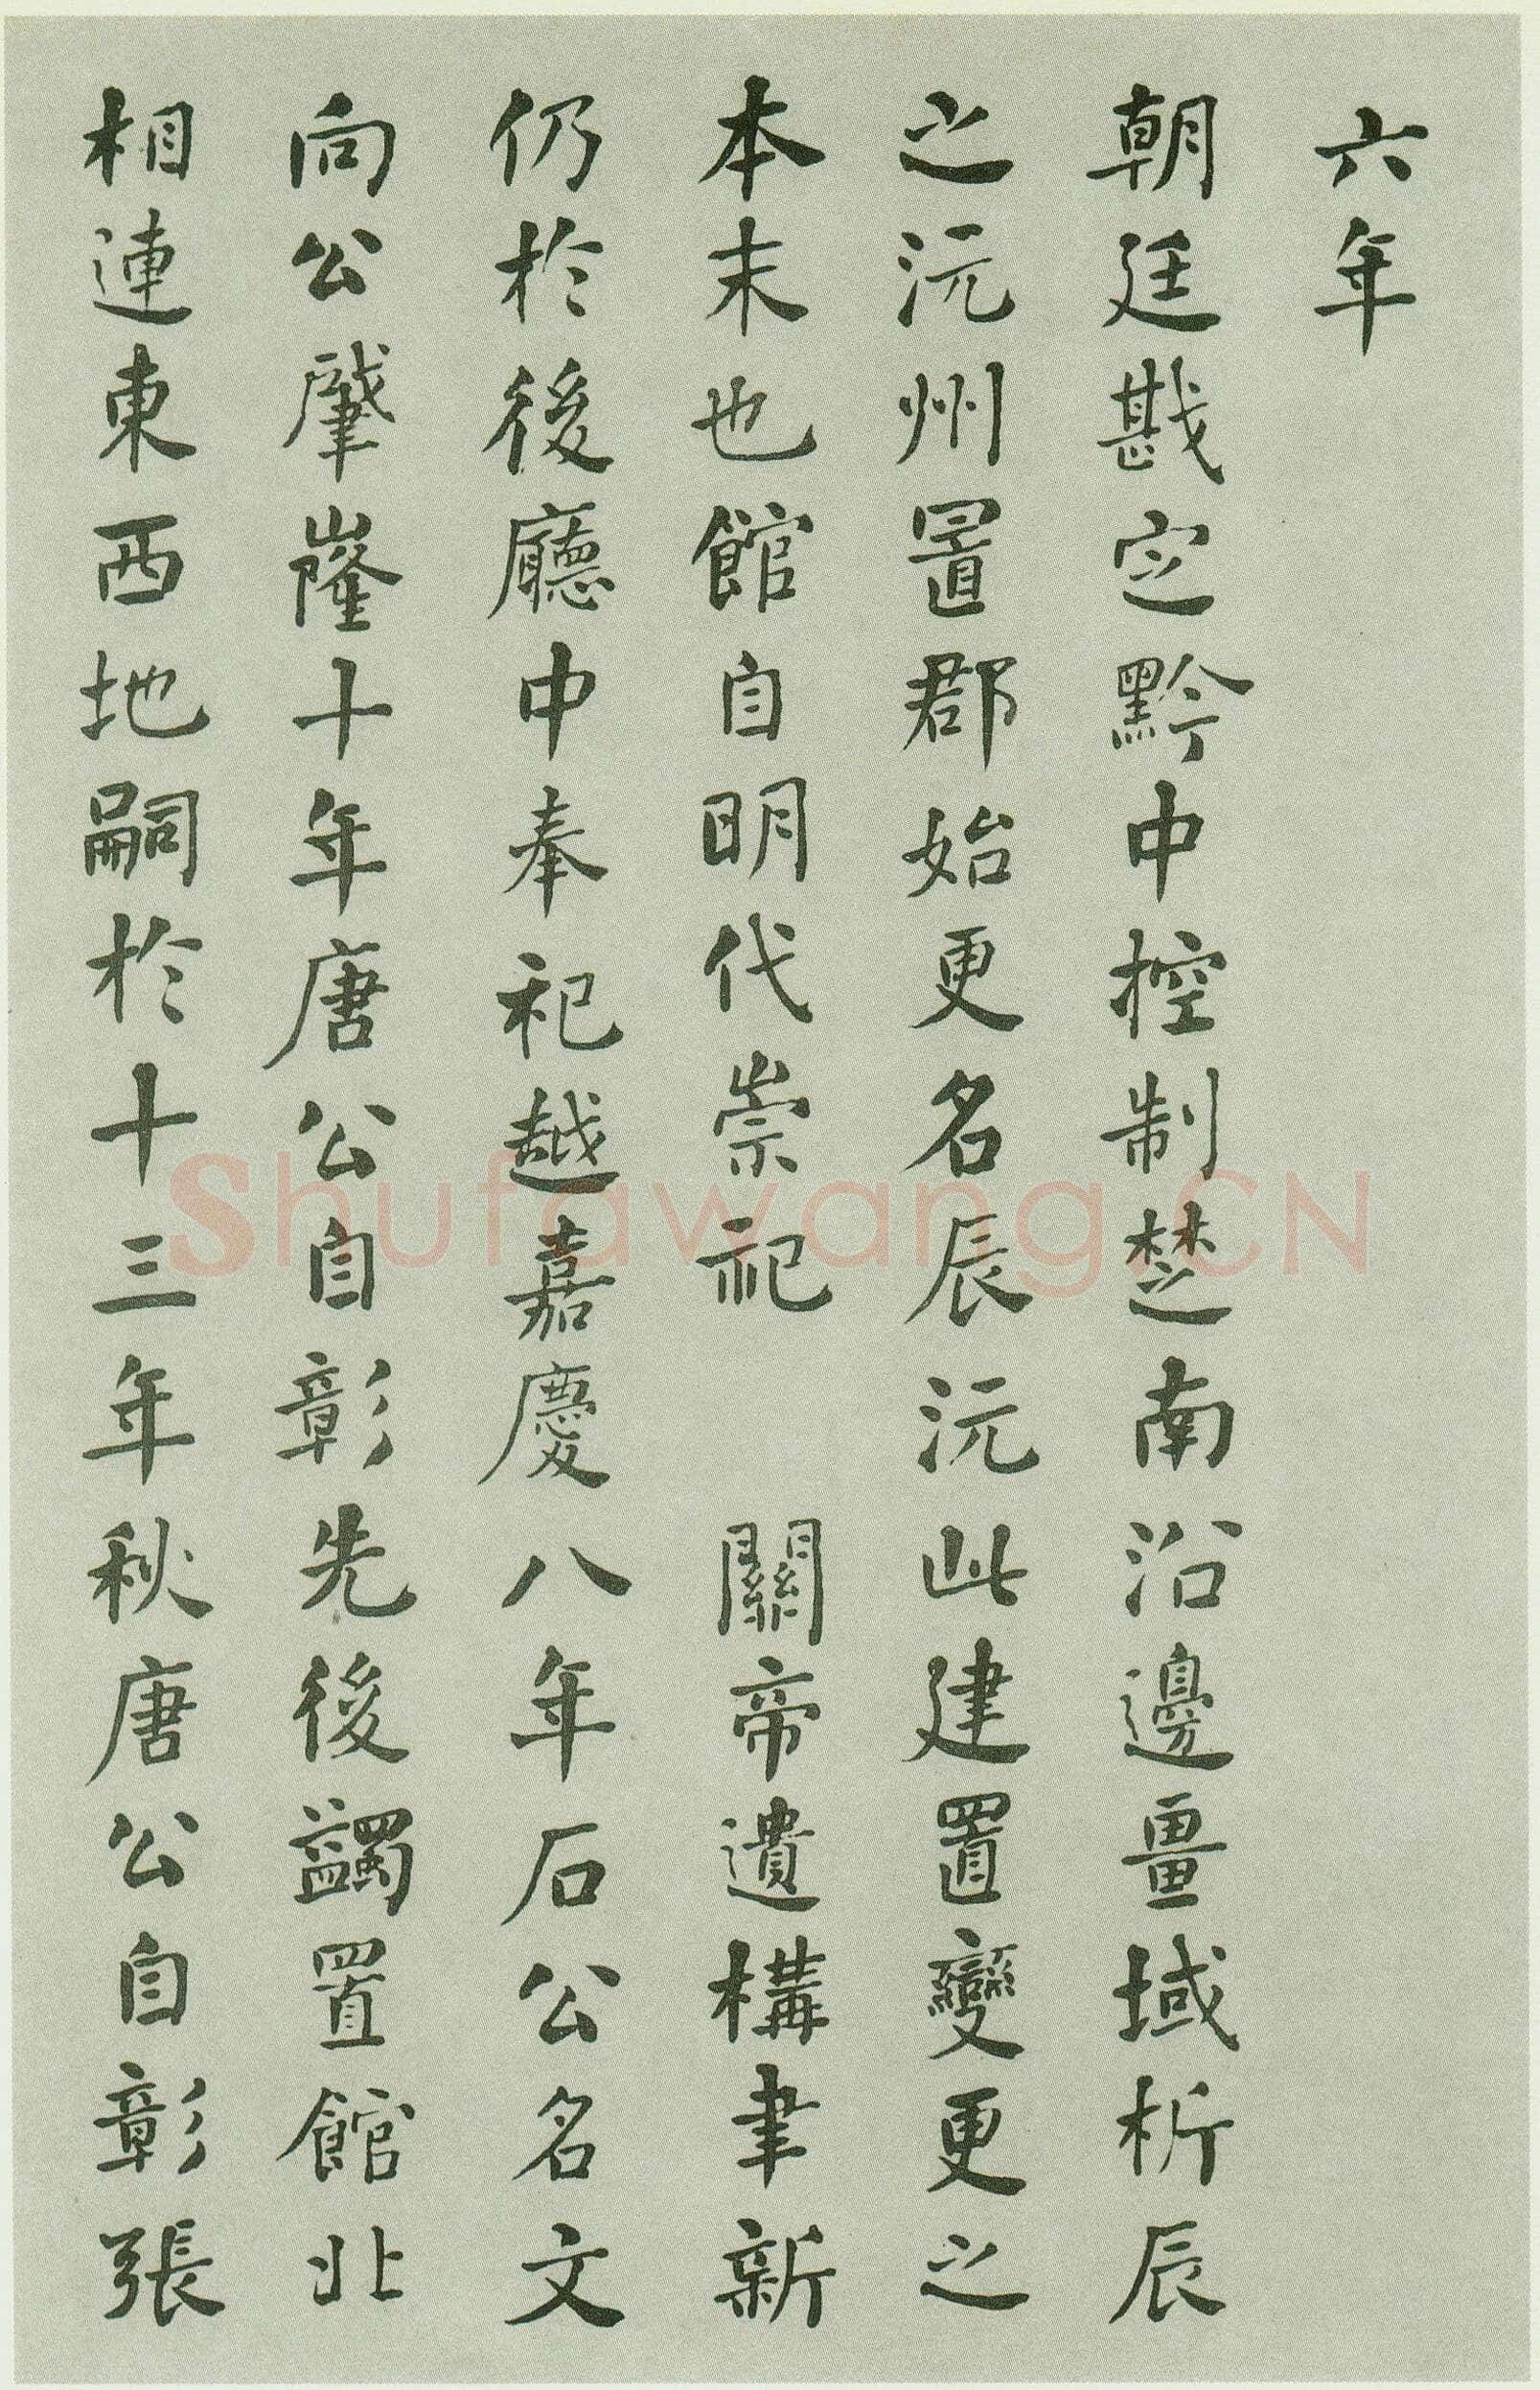 六年
朝廷戡定黔中控制楚南沿邊畺域析辰
之沅州置郡始更名辰沅此建置變更之
本末也館自明代崇祀關帝遺構聿新
仍於後廳中奉祀越嘉慶八年石公名文
向公肇隆十年唐公自彰先後蠲置館北
相連東西地嗣於十三年秋唐公自彰張
Shufawang.CN